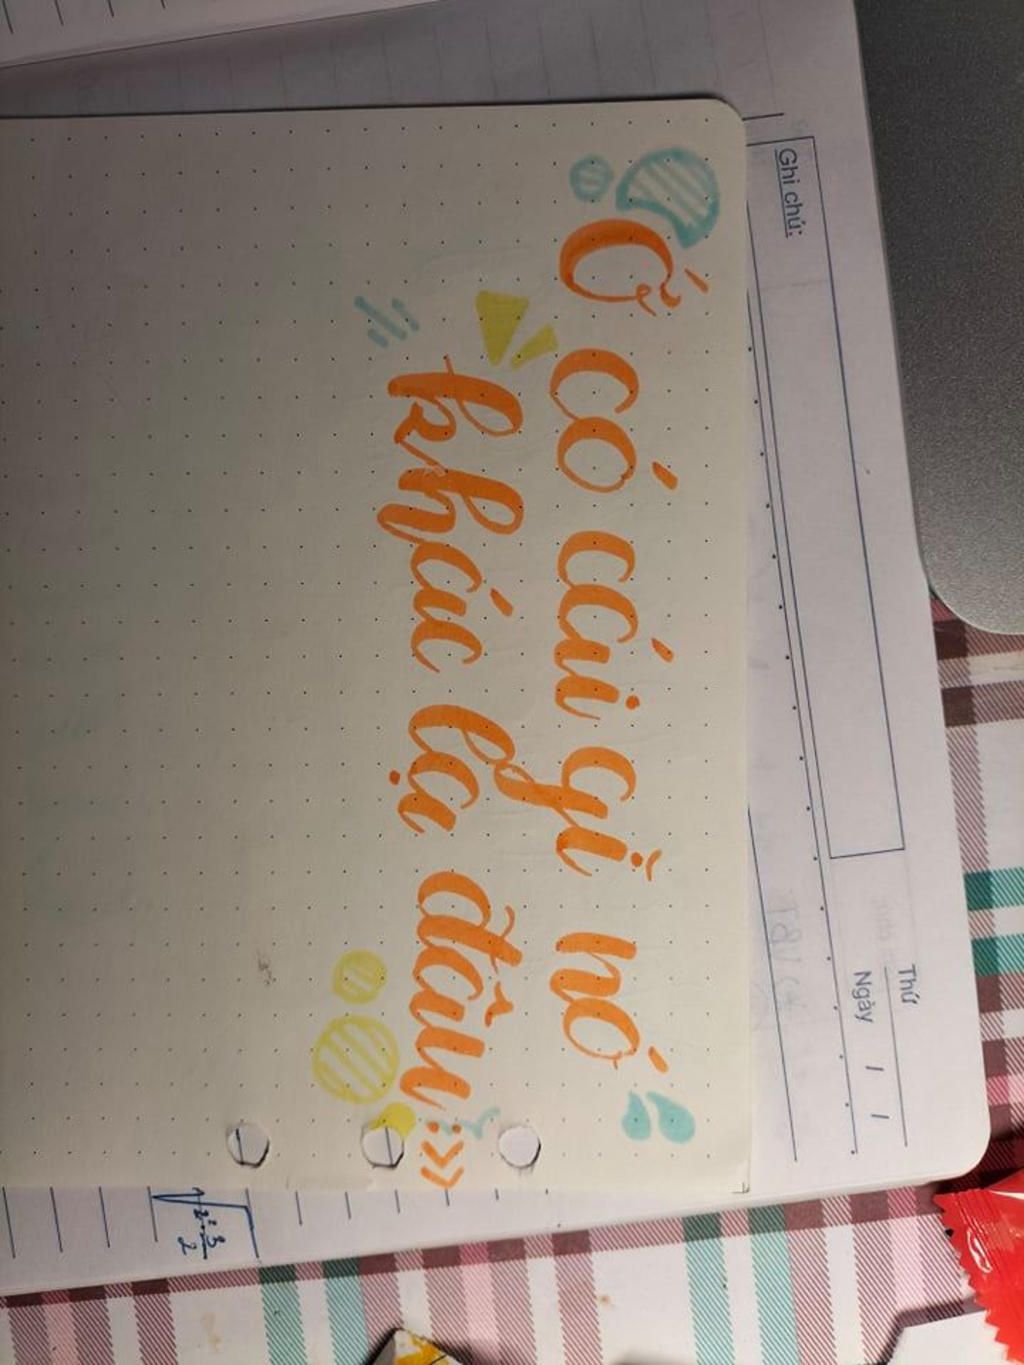 Thứ
Ngày / /
Ghi chú:
Ớ có cái gì nó
khác lạ đâu :>>